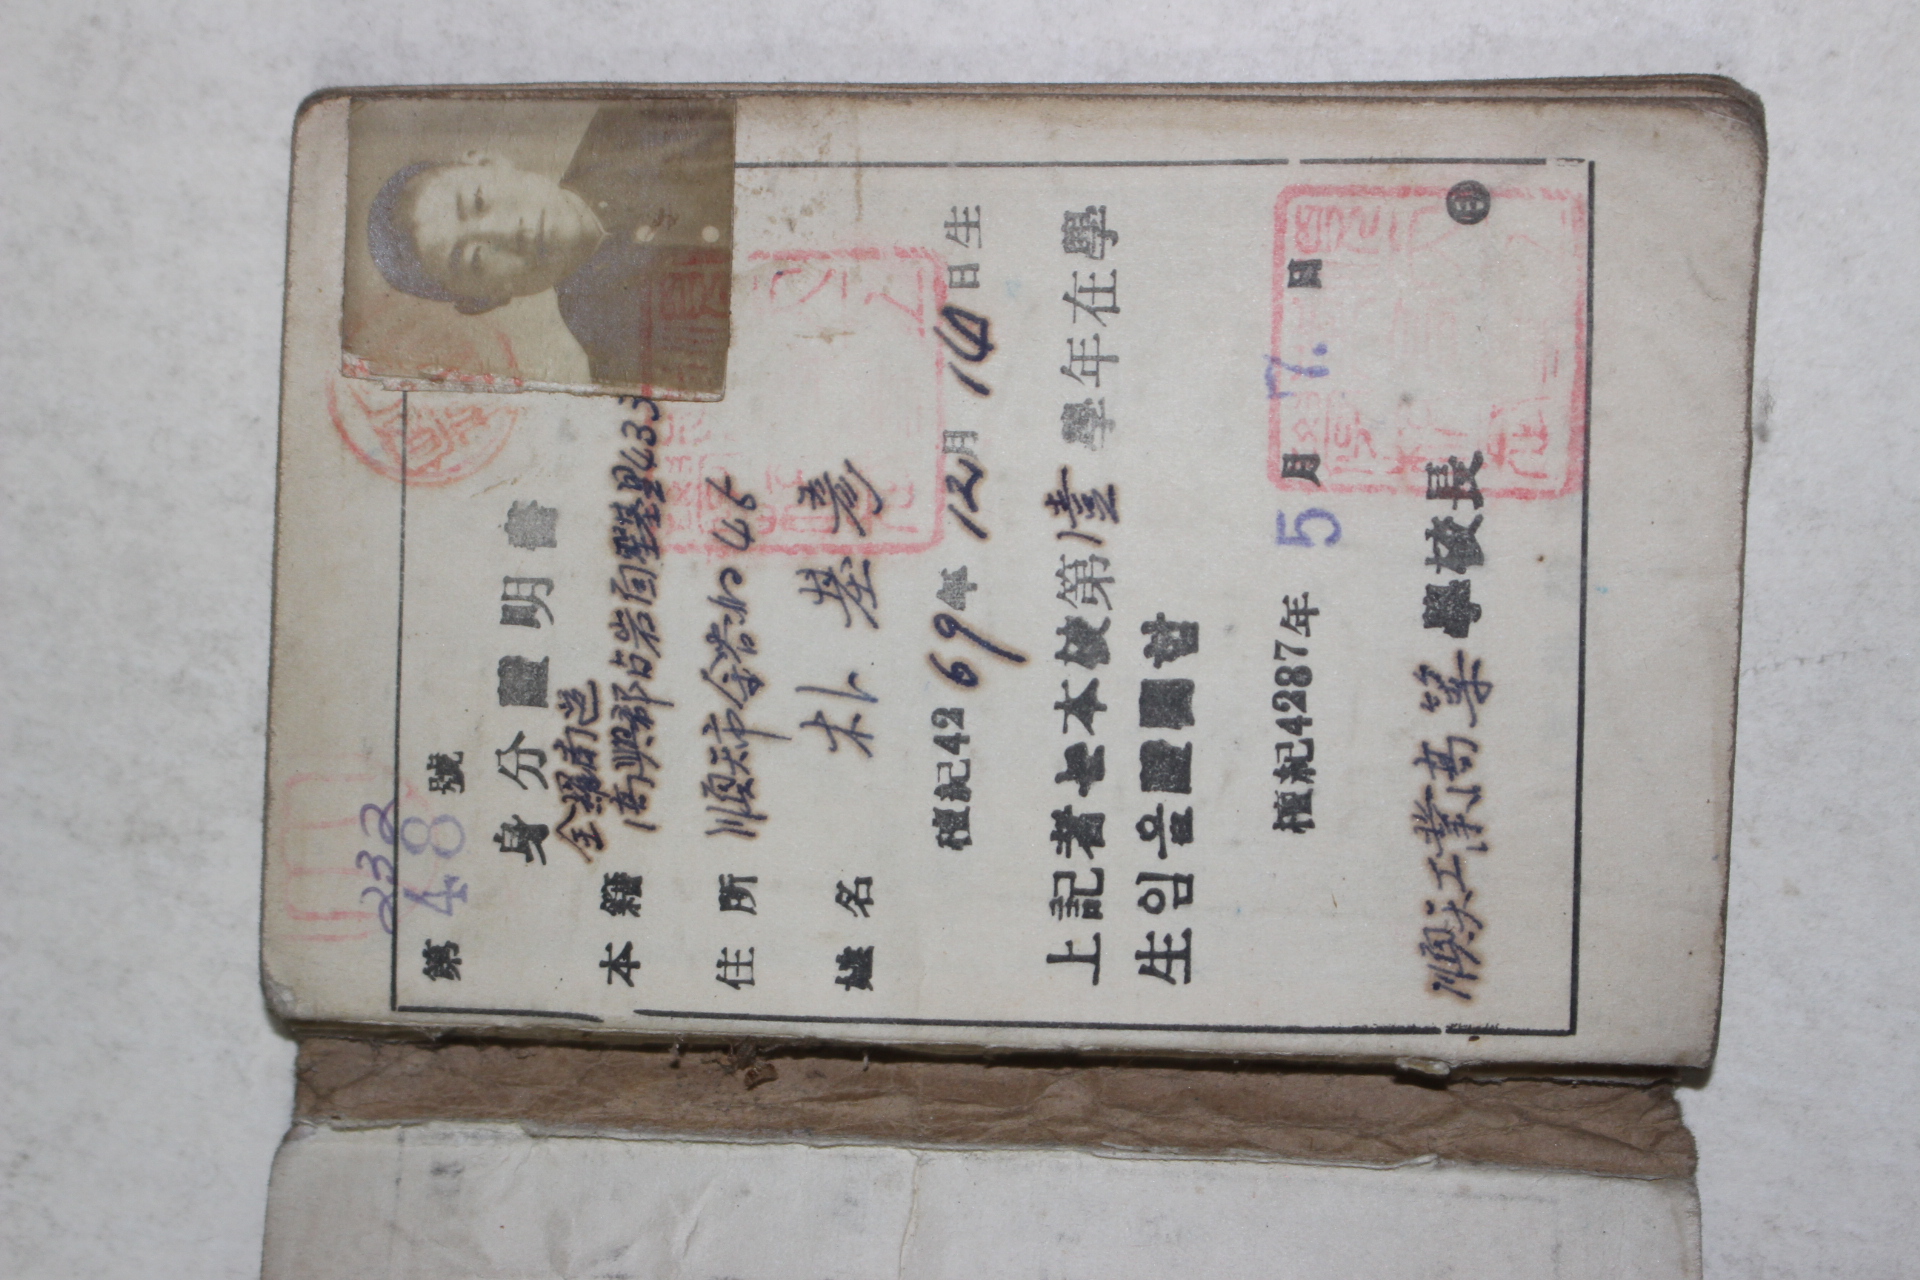 232
第 48 號
身分證明書
全羅南道
本籍 高興郡占岩面 里433
住所 順天市
姓名 朴基彦
檀紀4269年12月14日生
上記者는本校第壹學年在學
生임을證明함
檀紀4287年 5月 7.日
順天工業高等學校長 印